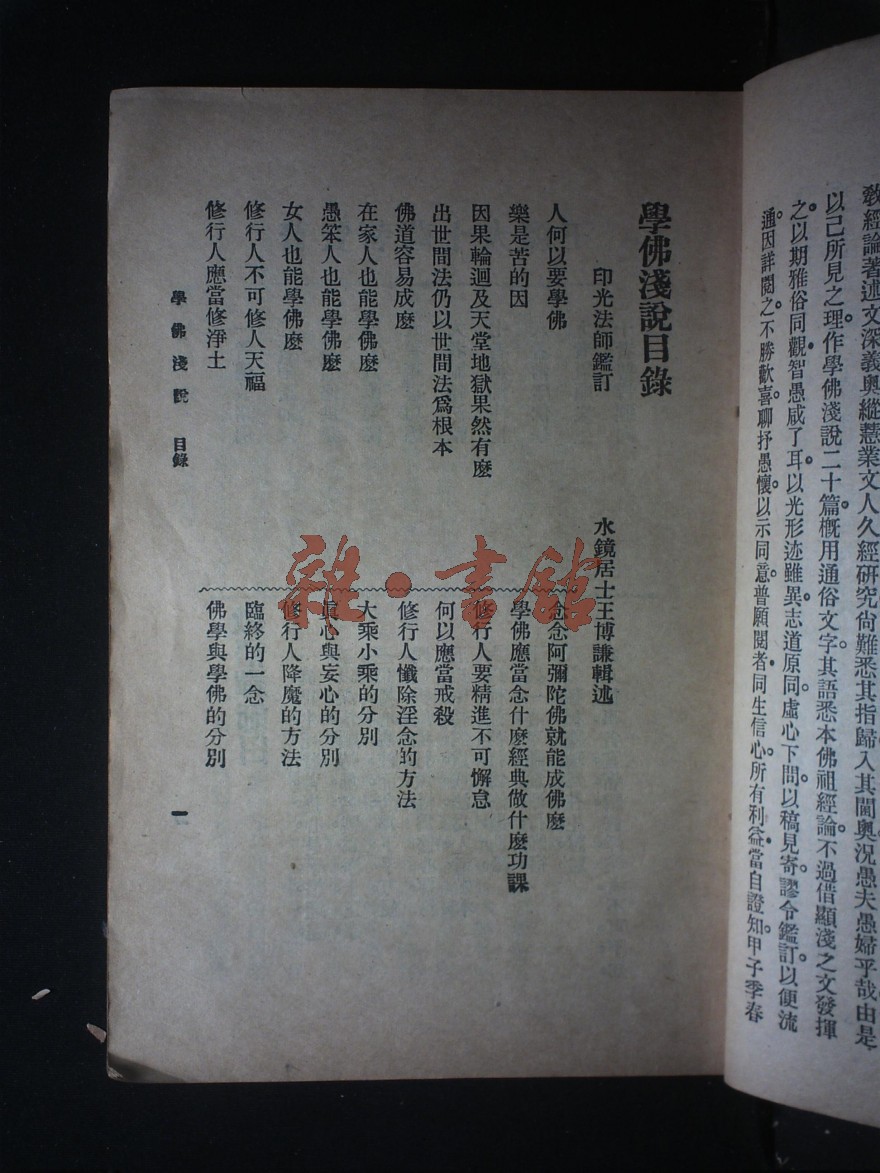 教經論著述文深義奧縱慧業文人久經研究尚難悉其指歸入其閫奧況愚夫愚婦乎哉由是
以己所見之理作學佛淺說二十篇概用通俗文字其語悉本佛祖經論不過借顯淺之文發揮
之以期雅俗同觀智愚咸了耳以光形迹雖異志道原同虛心下問以稿見寄謬令鑑訂以便流
通因詳閱之不勝歡喜聊抒愚懷以示同意普願閱者同生信心所有利益當自證知甲子季春
學佛淺說目錄
印光法師鑑訂
水鏡居士王博謙輯述
人何以要學佛
樂是苦的因
因果輪迴及天堂地獄果然有麽
出世間法仍以世間法爲根本
佛道容易成麽
在家人也能學佛麽
愚笨人也能學佛麽
女人也能學佛麽
修行人不可修人天福
修行人應當修淨土
念念阿彌陀佛就能成佛麽
學佛應當念什麽經典做什麽功課
修行人要精進不可懈怠
何以應當戒殺
修行人懺除淫念的方法
大乘小乘的分別
眞心與妄心的分別
修行人降魔的方法
臨終的一念
佛學與學佛的分別
學佛淺說 目錄
一
雜·書館